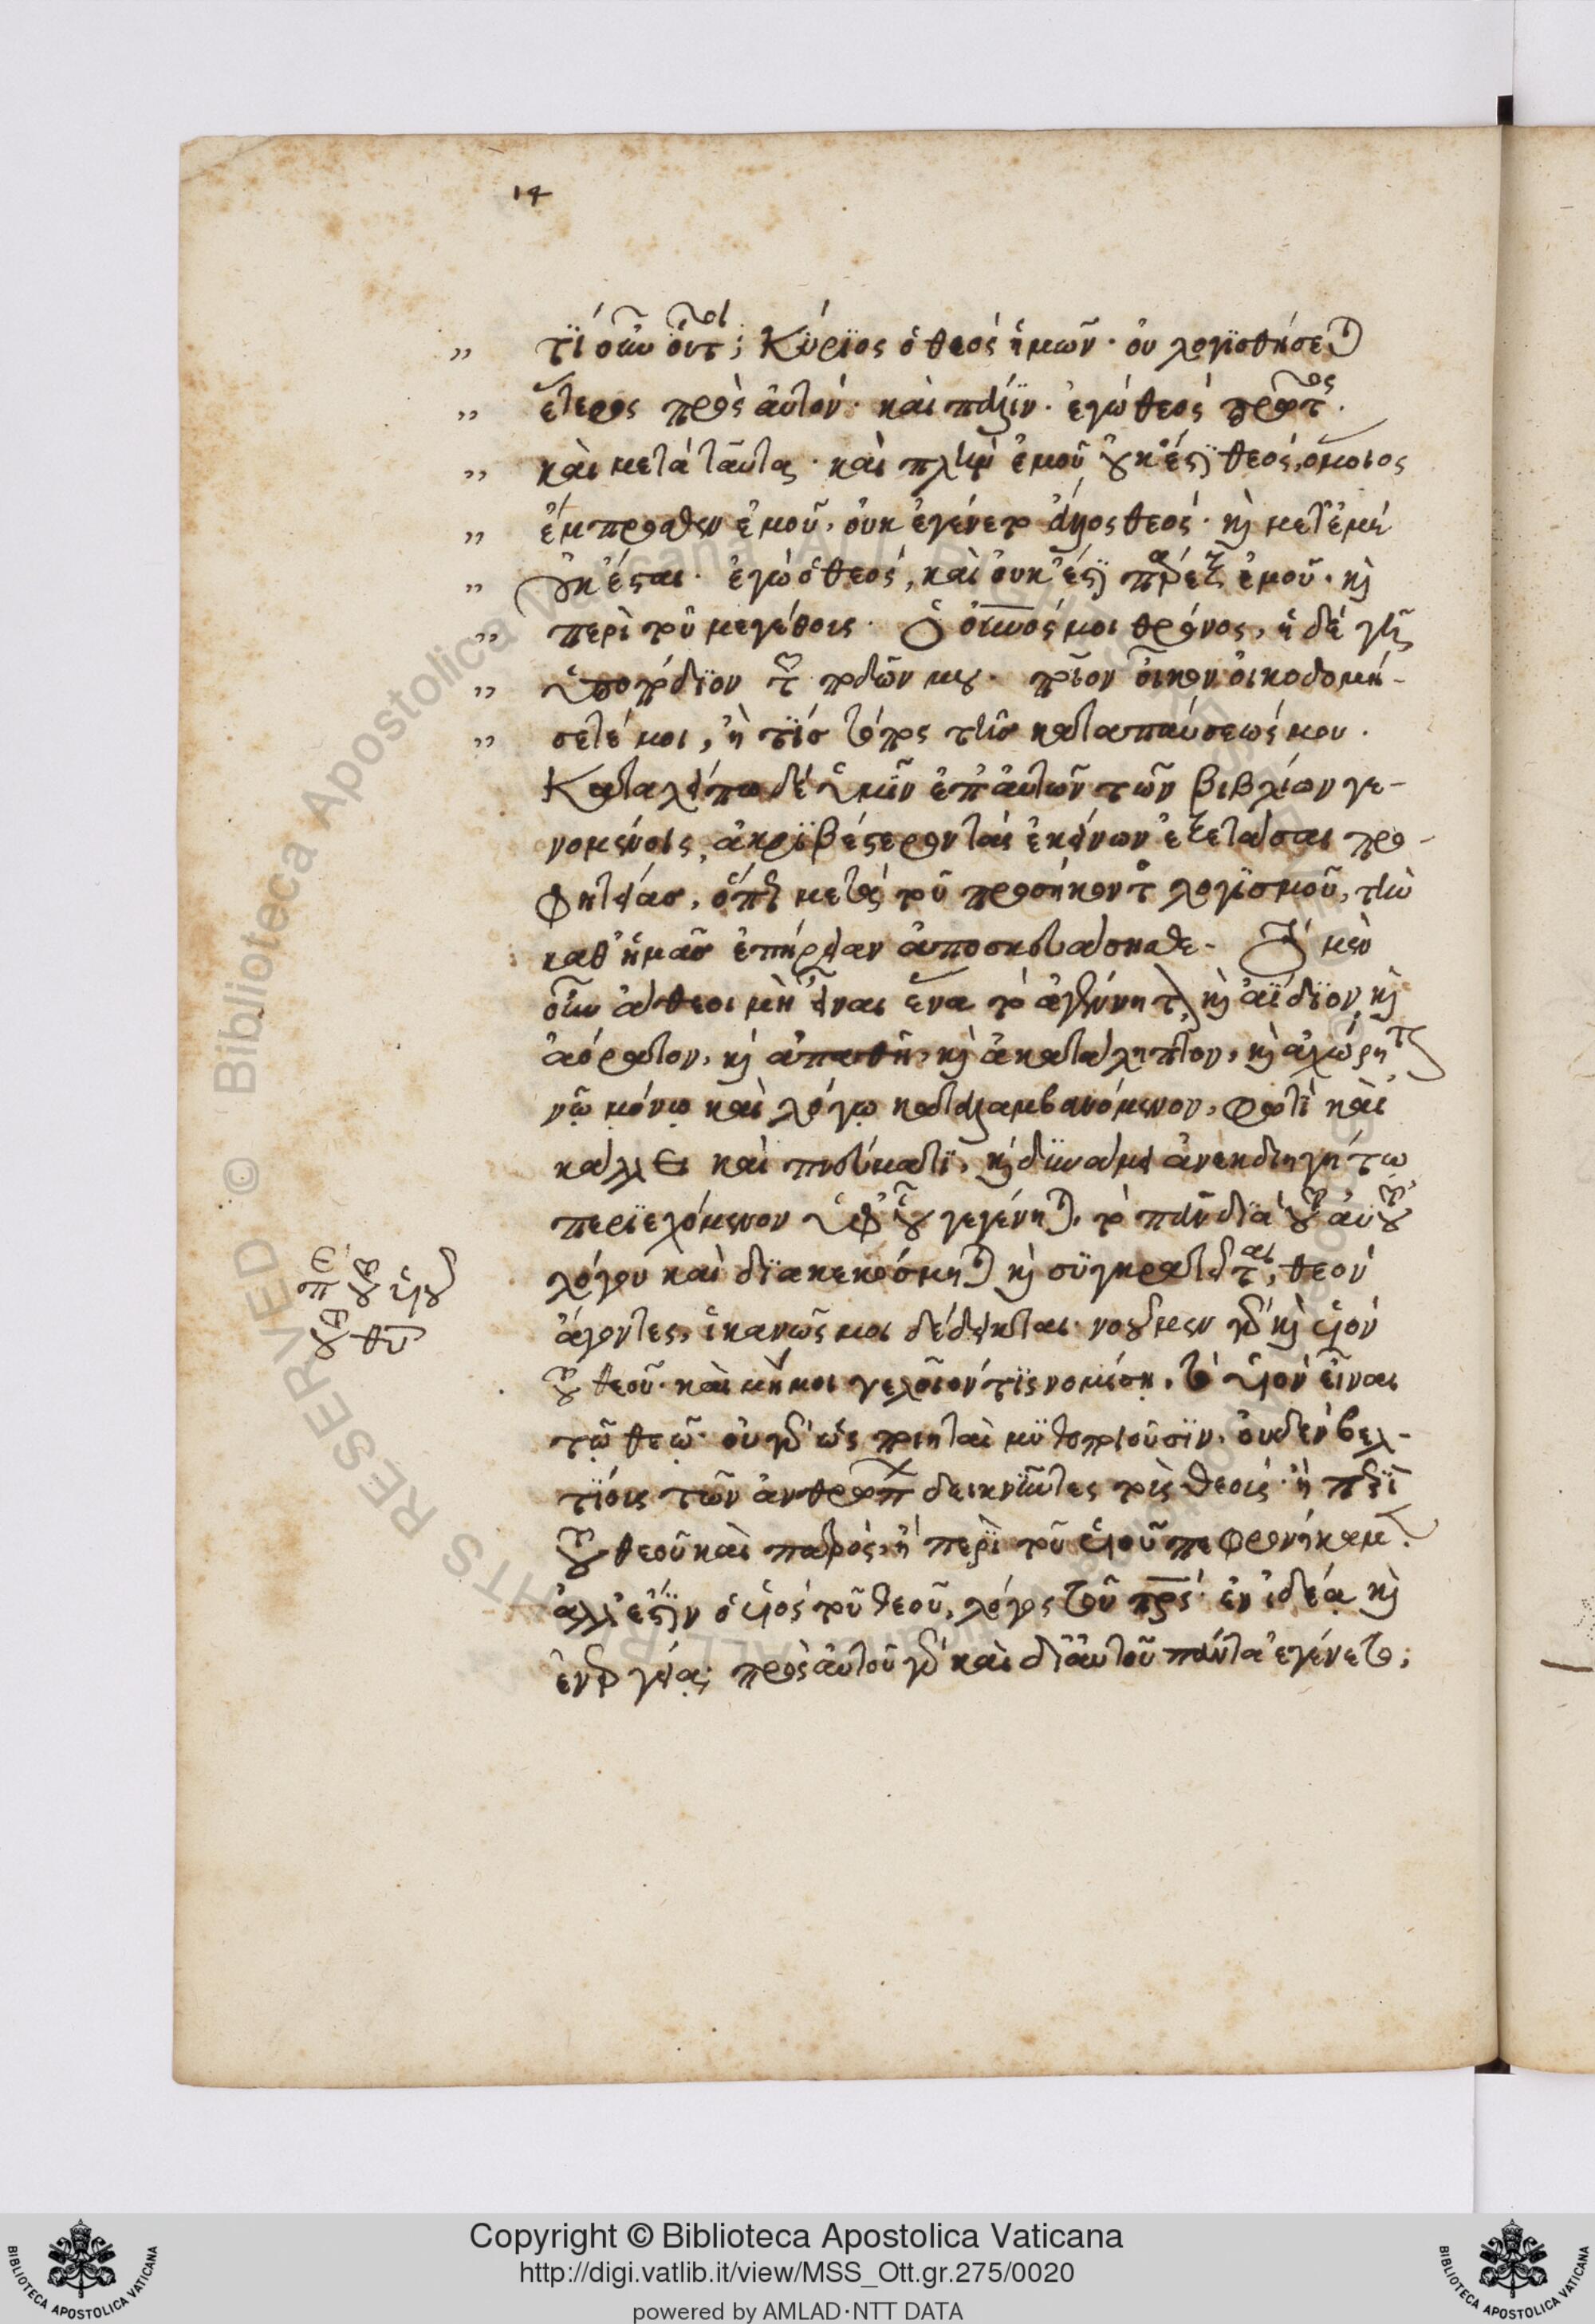 14
τί οὖν οὗτοι; Κύριος ὁ θεὸς ἡμῶν· οὐ λογισθήσεται
ἕτερος πρὸς αὐτόν· καὶ πάλιν· ἐγὼ θεὸς πρῶτος·
καὶ μετὰ ταῦτα· καὶ πλὴν ἐμοῦ οὐκ ἔστι θεός, ὅμοιος
ἔμπροσθεν ἐμοῦ, οὐκ ἐγένετο ἄλλος θεός· καὶ μετ' ἐμὲ
οὐκ ἔσται· ἐγὼ ὁ θεός, καὶ οὐκ ἔστι πάρεξ ἐμοῦ· καὶ
περὶ τοῦ μεγέθους· ὁ οὐνός μοι θρόνος, ἡ δὲ γῆ
ὑποπόδιον τῶν ποδῶν μου· ποῖον οἶκον οἰκοδομή-
σετέ μοι, ἢ τίς τόπος τῆς καταπαύσεώς μου.
Καταλείπω δὲ ὑμῖν ἐπ' αὐτῶν τῶν βιβλίων γε-
νομένοις, ἀκριβέστερον τὰς ἐκείνων ἐξετάσαι προ-
φητείας, ὅπως μετὰ τοῦ προσήκοντος λογισμοῦ, τὴν
καθ' ἡμᾶς ἐπήρειαν ἀποσκευάσησθε. Τὸ μὲν
οὖν ἄθεοι μὴ εἶναι ἕνα τὸ ἀγέννητον καὶ ἀΐδιον, καὶ
ἀόρατον, καὶ ἀπαθῆ, καὶ ἀκατάληπτον, καὶ ἀχώρητον
νῷ μόνῳ καὶ λόγῳ καταλαμβανόμενον, φωτὶ καὶ
κάλλει καὶ πνεύματι, καὶ δυνάμει ἀνεκδιηγήτῳ
περιεχόμενον ὑφ' οὗ γεγένηται, τὸ πᾶν διὰ τοῦ αὐτοῦ
λόγου καὶ διακεκόσμηται καὶ συγκρατεῖται, θεὸν
ἄγοντες, ἱκανῶς μοι δέδεικται· νοοῦμεν γὰρ καὶ υἱὸν
τοῦ θεοῦ· καὶ μή μοι γελοῖόν τις νομίσῃ, τὸ υἱὸν εἶναι
τῷ θεῷ· οὐ γὰρ ὡς ποιηταὶ μυθοποιοῦσιν, οὐδὲν βελ-
τίους τῶν ἀνθρώπων δεικνύντες τοὺς θεούς· ἢ περὶ
τοῦ θεοῦ καὶ πατρός, ἢ περὶ τοῦ υἱοῦ πεφρονήκαμεν·
ἀλλ' ἔστιν ὁ υἱὸς τοῦ θεοῦ, λόγος τοῦ πρς· ἐν ἰδέᾳ καὶ
ἐνεργείᾳ· πρὸς αὐτοῦ γὰρ καὶ δι' αὐτοῦ πάντα ἐγένετο;
περὶ τοῦ υἱοῦ
τοῦ θῦ
Copyright © Biblioteca Apostolica Vaticana
http://digi.vatlib.it/view/MSS_Ott.gr.275/0020
powered by AMLAD·NTT DATA
BIBLIOTECA APOSTOLICA VATICANA
BIBLIOTECA APOSTOLICA VATICANA